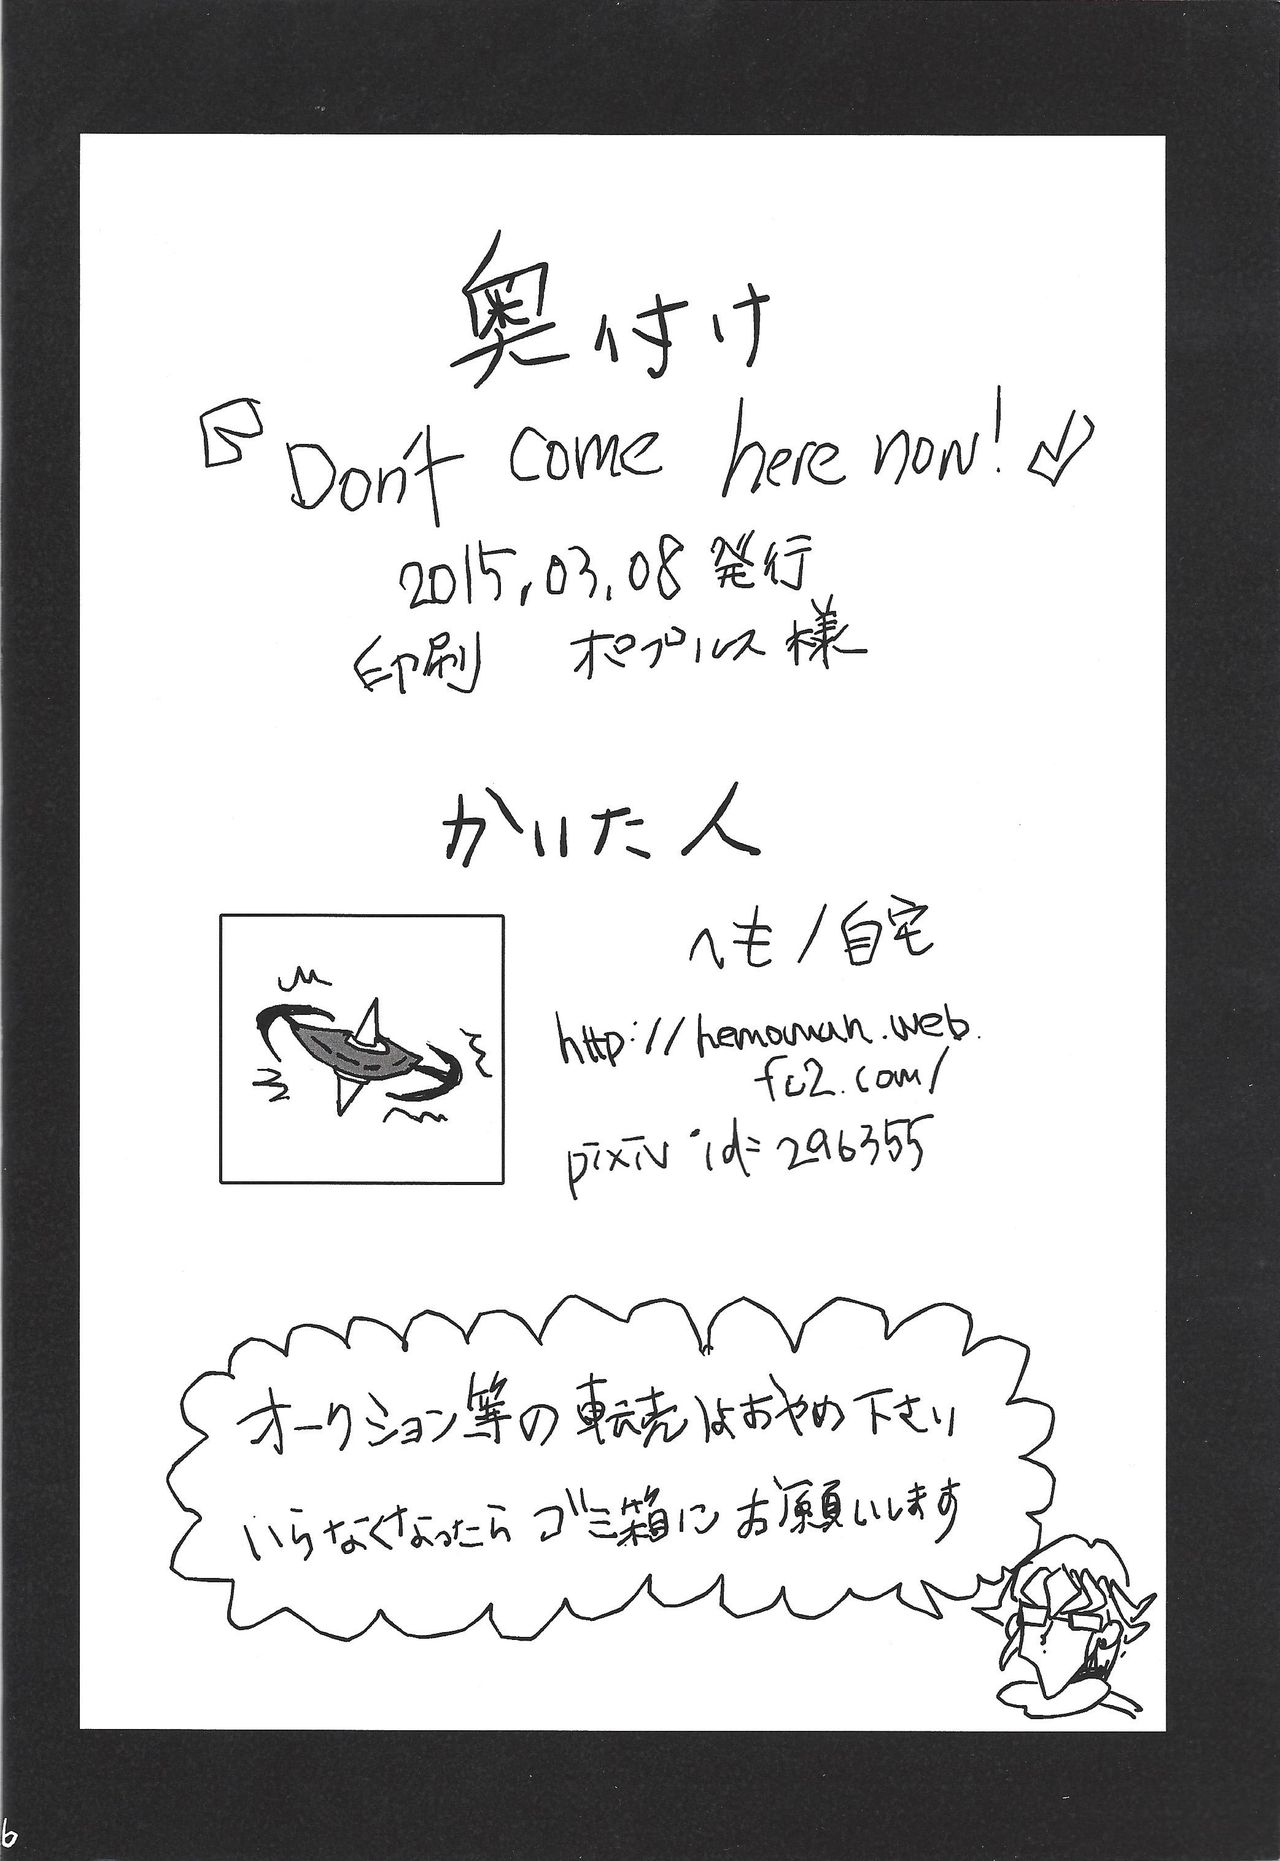 奥付け
『Don't come here now!』
2015.03.08 発行
印刷 ポプルス様
かいた人
へも/自宅
http://hemoman.web.
fc2.com/
pixiv id=296355
オークション等の転売はおやめ下さい
いらなくなったらゴミ箱にお願いします
6